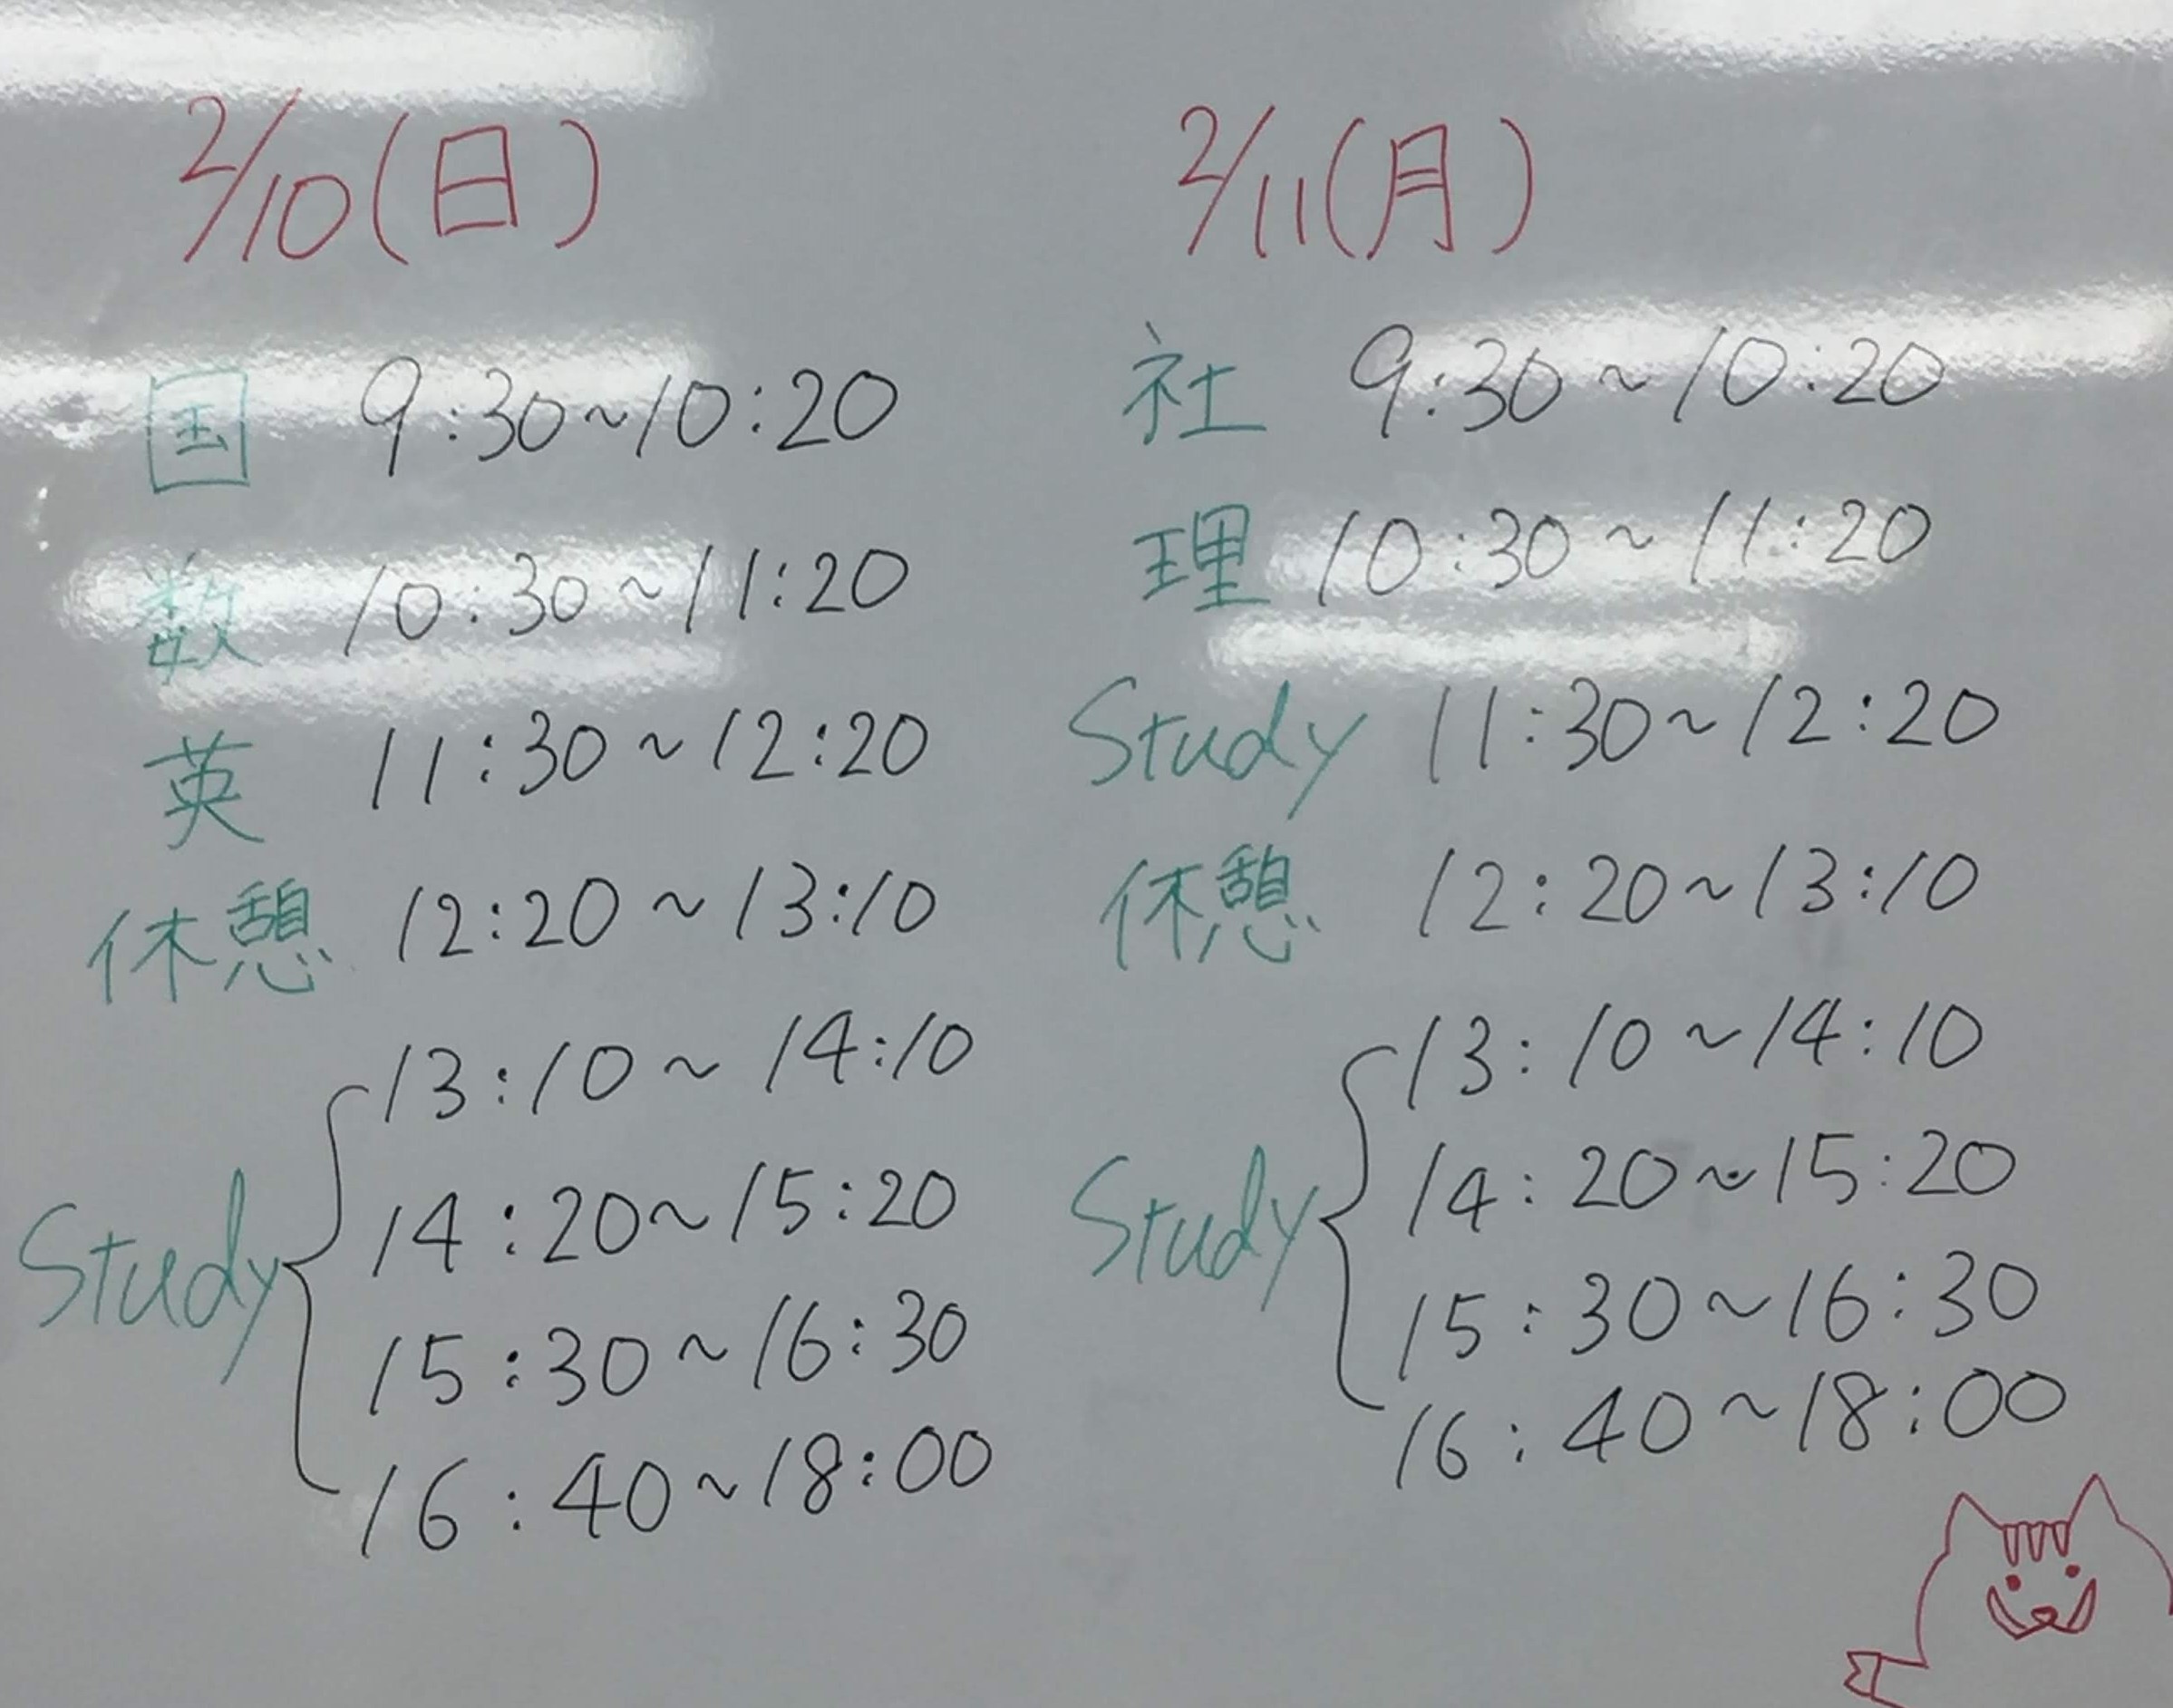 2/10(日)
国 9:30~10:20
数 10:30~11:20
英 11:30~12:20
休憩 12:20~13:10
Study
13:10~14:10
14:20~15:20
15:30~16:30
16:40~18:00
2/11(月)
社 9:30~10:20
理 10:30~11:20
Study 11:30~12:20
休憩 12:20~13:10
Study
13:10~14:10
14:20~15:20
15:30~16:30
16:40~18:00